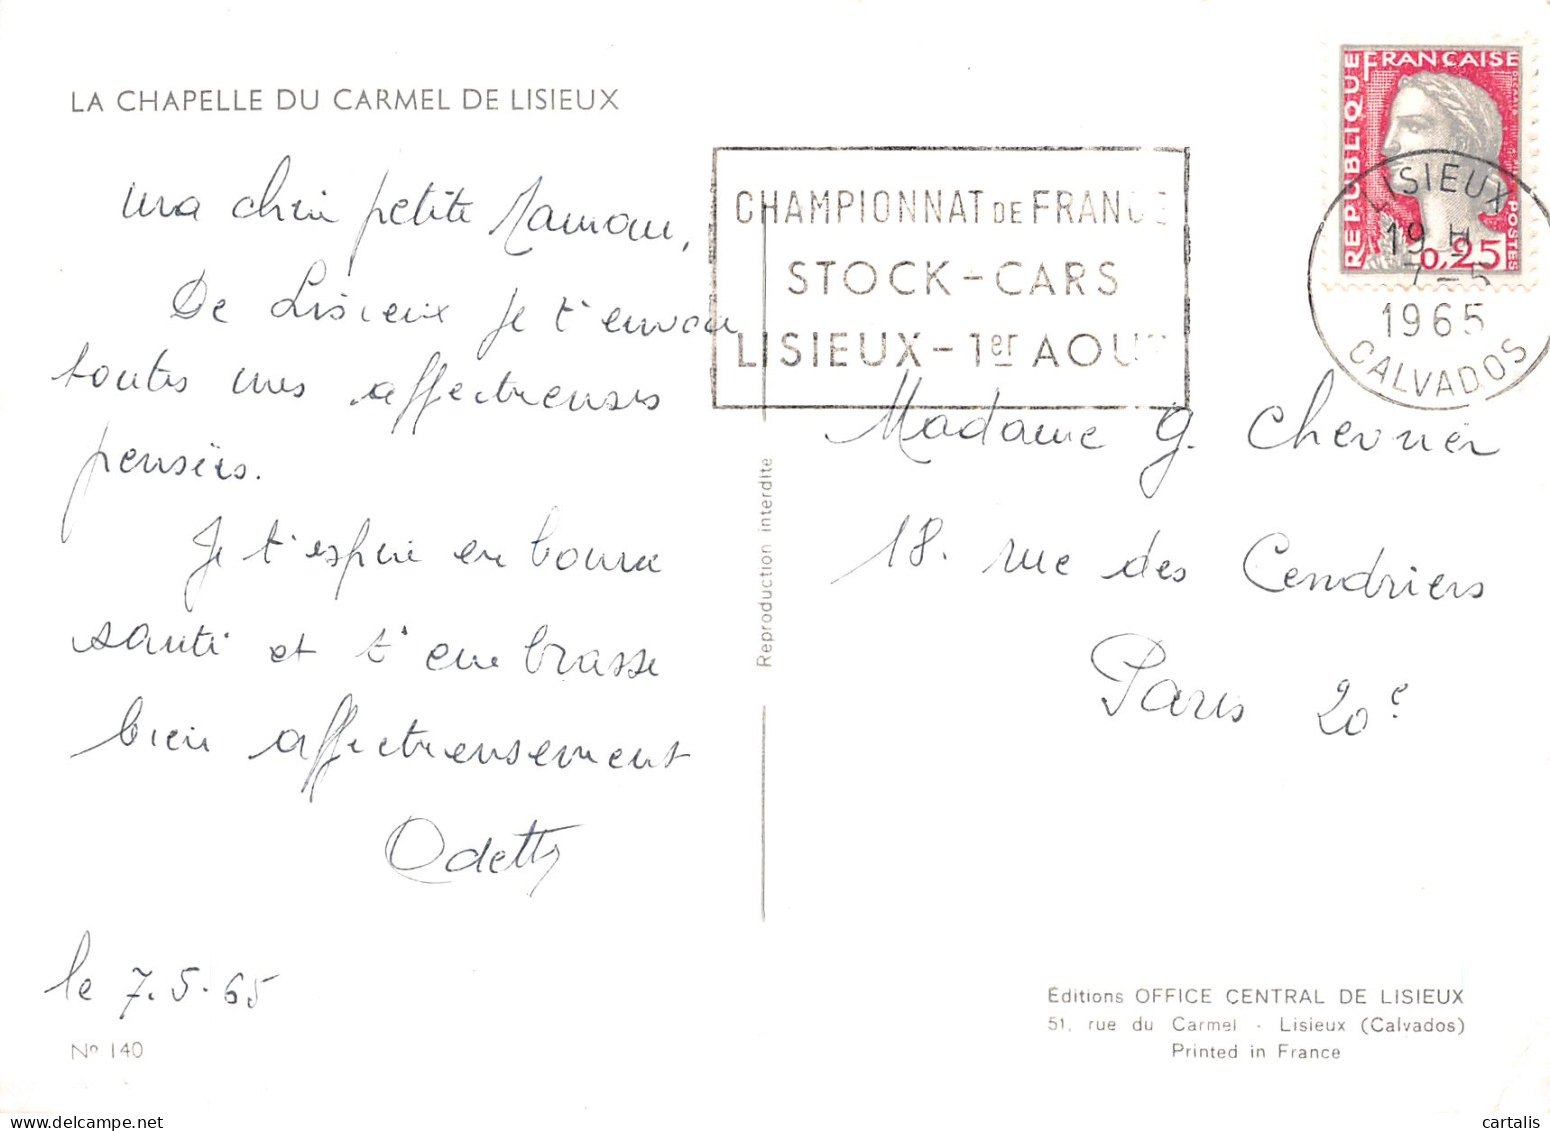 LA CHAPELLE DU CARMEL DE LISIEUX
ma chère petite Maman,
De Lisieux je t'envoie
toutes mes affectueuses
pensées.
Je t'espère en bonne
santé et t'embrasse
bien affectueusement
Odette
le 7.5.65
Nº 140
Reproduction interdite
CHAMPIONNAT DE FRANCE
STOCK-CARS
LISIEUX-1er AOUT
RÉPUBLIQUE FRANÇAISE
POSTES
0,25
LISIEUX
19 H
7-5
1965
CALVADOS
Madame G. Chevrier
18. rue des Cendriers
Paris 20e
Éditions OFFICE CENTRAL DE LISIEUX
51, rue du Carmel - Lisieux (Calvados)
Printed in France
cartalis | delcampe.net